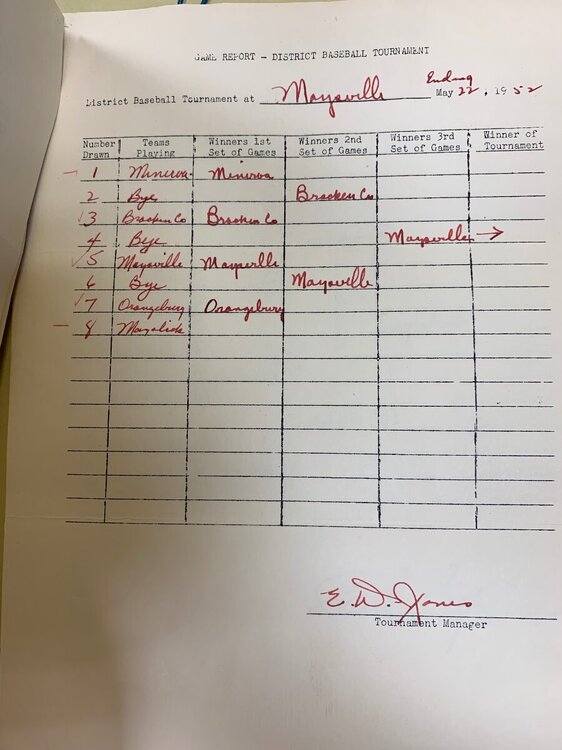 GAME REPORT - DISTRICT BASEBALL TOURNAMENT
Ending
District Baseball Tournament at Maysville May 22, 1952
Number Drawn Teams Playing Winners 1st Set of Games Winners 2nd Set of Games Winners 3rd Set of Games Winner of Tournament
1 Minerva Minerva
2 Bye Bracken Co
3 Bracken Co Bracken Co
4 Bye Maysville →
5 Maysville Maysville
6 Bye Maysville
7 Orangeburg Orangeburg
8 Mayslick
E. W. Jones
Tournament Manager